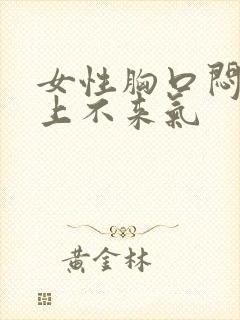 女性胸口悶
上不来氣
黃金林